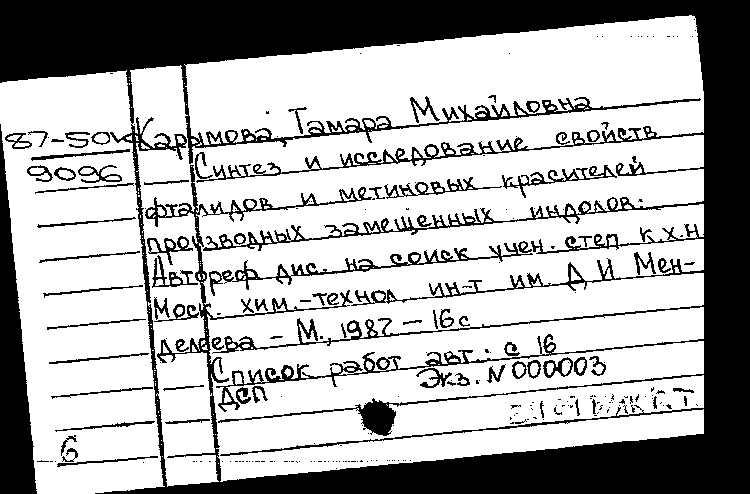 87-50к Карымова, Тамара Михайловна
9096 Синтез и исследование свойств
фталидов и метиновых красителей
производных замещенных индолов.
Автореф дис. на соиск учен. степ к.х.н
Моск. хим.-технол ин-т им. Д И Мен-
делеева - М., 1987 - 16 с.
Список работ авт.: с 16
ДСП Экз. N 000003
6